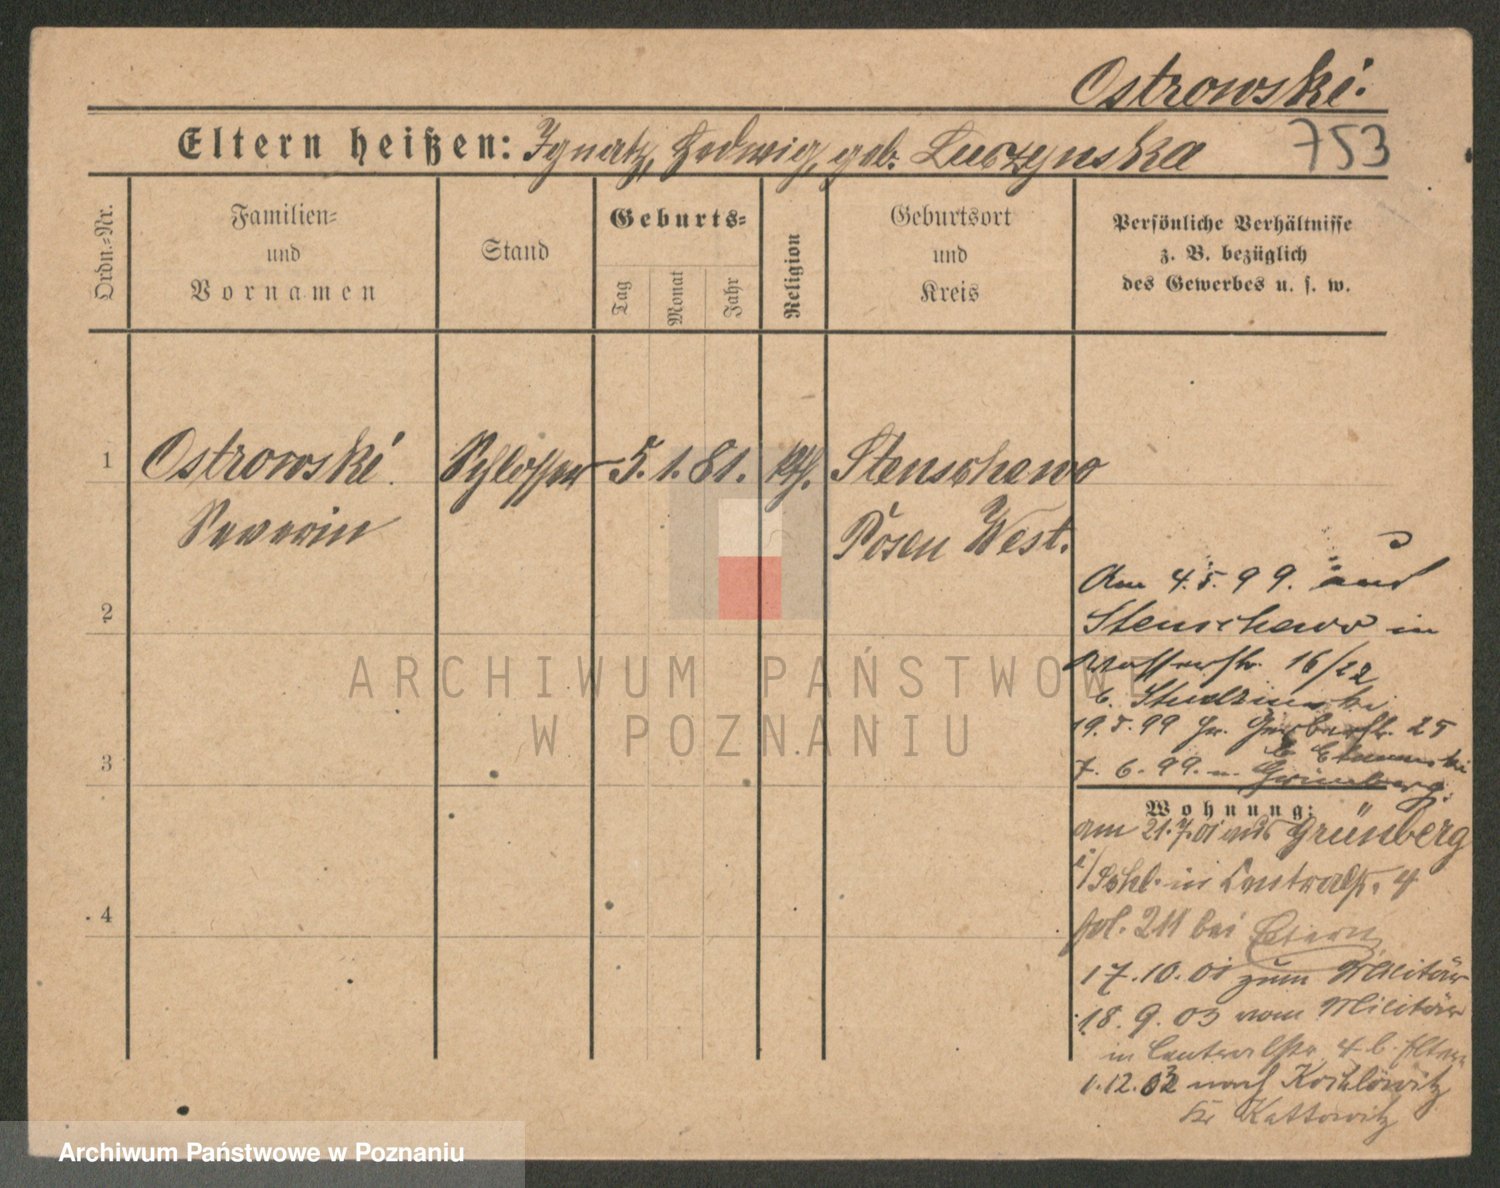 Ostrowski.
Eltern heißen: Ignatz, Hedwig, geb. Luczynska
753
Ordn.=Nr.
Familien=
und
Vornamen
Stand
Geburts=
Tag
Monat
Jahr
Religion
Geburtsort
und
Kreis
Persönliche Verhältnisse
z. B. bezüglich
des Gewerbes u. s. w.
1
Ostrowski Schlosser 5. 1. 81. kth. Stenschewo
Severin
Posen West.
2
Am 4.5.99. aus
Stenschewo in
Wasserstr. 16/22
b. Studzinski
19.5.99 Gr. Gerberstr. 25
b
3
7. 6. 99. n. Grünberg.
Wohnung:
am 21.7.01 aus Grünberg
i/Schl. in Centralstr. 4
4
fol. 211 bei Eltern
17.10.01 zum Militär
18. 9. 03 vom Militär
in Centralstr. 4 b. Eltern
1.12.03 nach Kochlowitz
Kr Kattowitz
ARCHIWUM PAŃSTWOWE
W POZNANIU
Archiwum Państwowe w Poznaniu